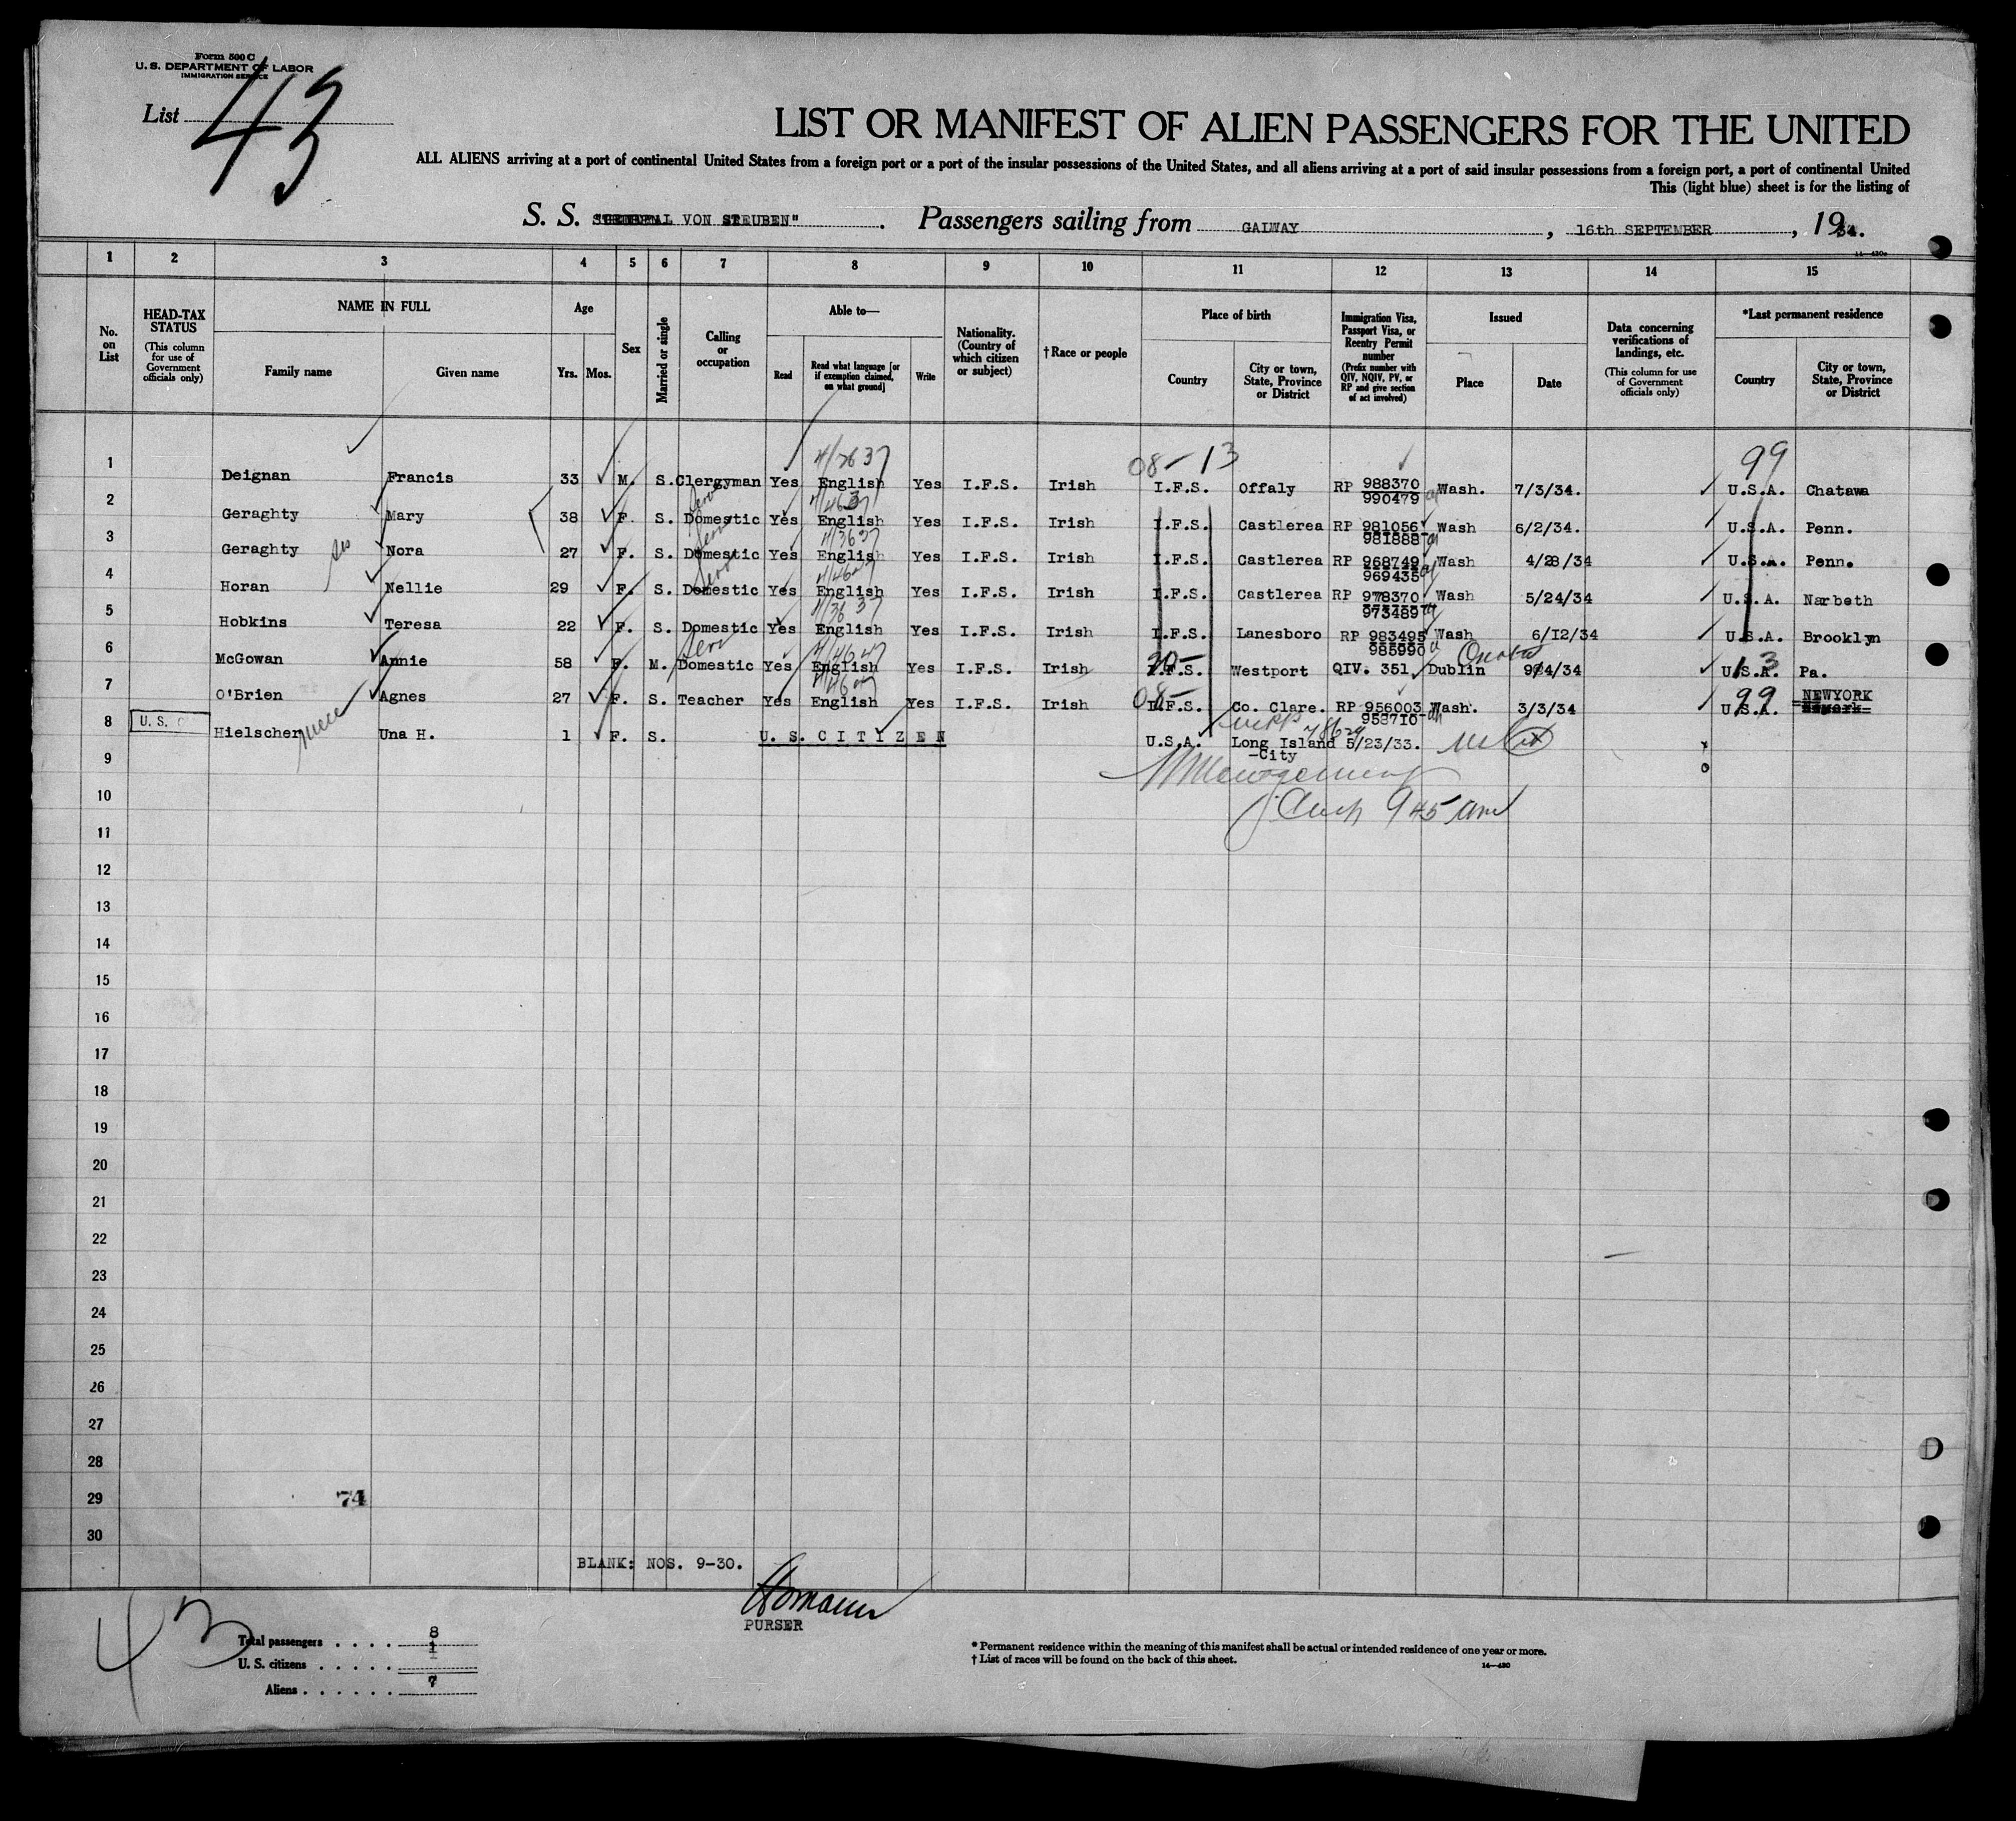 Form 500 C
U. S. DEPARTMENT OF LABOR
IMMIGRATION SERVICE
List 43
LIST OR MANIFEST OF ALIEN PASSENGERS FOR THE UNITED
ALL ALIENS arriving at a port of continental United States from a foreign port or a port of the insular possessions of the United States, and all aliens arriving at a port of said insular possessions from a foreign port, a port of continental United
This (light blue) sheet is for the listing of
S. S. "GENERAL VON STEUBEN". Passengers sailing from GALWAY, 16th SEPTEMBER, 1934.
14—430a
1 2 3 4 5 6 7 8 9 10 11 12 13 14 15
No. on List
HEAD-TAX STATUS
(This column for use of Government officials only)
NAME IN FULL
Family name Given name
Age
Yrs. Mos.
Sex
Married or single
Calling or occupation
Able to—
Read
Read what language [or if exemption claimed, on what ground]
Write
Nationality. (Country of which citizen or subject)
†Race or people
Place of birth
Country
City or town, State, Province or District
Immigration Visa, Passport Visa, or Reentry Permit number
(Prefix number with QIV, NQIV, PV, or RP and give section of act involved)
Issued
Place Date
Data concerning verifications of landings, etc.
(This column for use of Government officials only)
*Last permanent residence
Country
City or town, State, Province or District
08-13 99
1 Deignan Francis 33 M. S. Clergyman Yes English Yes I.F.S. Irish I.F.S. Offaly RP 988370 990479 Wash. 7/3/34. U.S.A. Chatawa
2 Geraghty Mary 38 F. S. Domestic Yes English Yes I.F.S. Irish I.F.S. Castlerea RP 981056 981888 Wash 6/2/34. U.S.A. Penn.
3 Geraghty Nora 27 F. S. Domestic Yes English Yes I.F.S. Irish I.F.S. Castlerea RP 968749 969435 Wash 4/28/34 U.S.A. Penn.
4 Horan Nellie 29 F. S. Domestic Yes English Yes I.F.S. Irish I.F.S. Castlerea RP 978370 973489 Wash 5/24/34 U.S.A. Narbeth
5 Hobkins Teresa 22 F. S. Domestic Yes English Yes I.F.S. Irish I.F.S. Lanesboro RP 983495 985990 Wash 6/12/34 U.S.A. Brooklyn
6 McGowan Annie 58 F. M. Domestic Yes English Yes I.F.S. Irish I.F.S. Westport QIV. 351 Dublin 9/4/34 U.S.A. 13 Pa.
7 O'Brien Agnes 27 F. S. Teacher Yes English Yes I.F.S. Irish 08- I.F.S. Co. Clare. RP 956003 958710 Wash. 3/3/34 U.S.A. 99 NEWYORK Newark
8 U. S. C Hielscher Una H. 1 F. S. U. S. CITIZEN U.S.A. Long Island -City 5/23/33.
9
10
11
12
13
14
15
16
17
18
19
20
21
22
23
24
25
26
27
28
29 74
30
BLANK: NOS. 9-30.
PURSER
43
Total passengers . . . . 8
U. S. citizens . . . . . 1
Aliens . . . . . . 7
* Permanent residence within the meaning of this manifest shall be actual or intended residence of one year or more.
† List of races will be found on the back of this sheet.
14—430